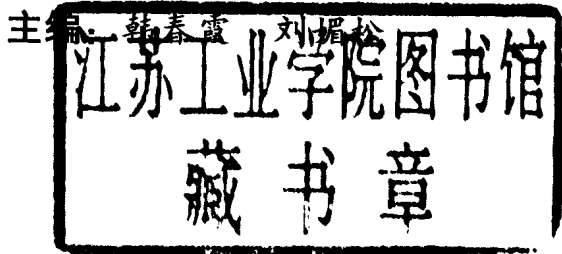 主编：韩春霞 刘媚松
江苏工业学院图书馆
藏书章